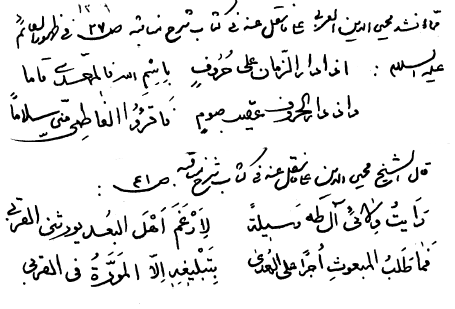 ١٣٠٩
مما أنشد محيي الدين العربي على ما نقل عنه في كتاب شرح نباتية ص ٢٧ في ظهور القائم
عليه السلام : اذا دار الزمان على حروفٍ باِسْمِ الله فالمهدي قاما
واذا دار الحروف عقيب صومٍ فاقرؤا الفاطمي مني سلاماً
قال الشيخ محيي الدين على ما نقل عنه في كتاب شرح ص ٤١ :
رَايتُ وِلائي آل طه وسيلةً لِاَرغَمَ اَهْلَ البُعد يورثني القربى
فما طَلَبَ المبعوثِ اُجرًا على الهُدى بِتَبْلِيغِهِ اِلّا المَوَدَّةُ في القربى